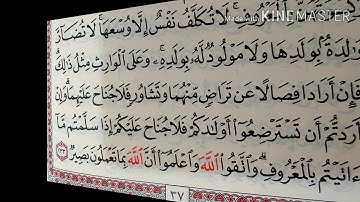 Made with KINEMASTER
لَا تُكَلَّفُ نَفْسٌ إِلَّا وُسْعَهَا ۚ لَا تُضَارَّ
وَٰلِدَةٌۢ بِوَلَدِهَا وَلَا مَوْلُودٌ لَّهُۥ بِوَلَدِهِۦ ۚ وَعَلَى ٱلْوَارِثِ مِثْلُ ذَٰلِكَ ۗ
فَإِنْ أَرَادَا فِصَالًا عَن تَرَاضٍ مِّنْهُمَا وَتَشَاوُرٍ فَلَا جُنَاحَ عَلَيْهِمَا ۗ وَإِنْ
أَرَدتُّمْ أَن تَسْتَرْضِعُوٓا۟ أَوْلَٰدَكُمْ فَلَا جُنَاحَ عَلَيْكُمْ إِذَا سَلَّمْتُم مَّآ
ءَاتَيْتُم بِٱلْمَعْرُوفِ ۗ وَٱتَّقُوا۟ ٱللَّهَ وَٱعْلَمُوٓا۟ أَنَّ ٱللَّهَ بِمَا تَعْمَلُونَ بَصِيرٌ ٢٣٣
٣٧